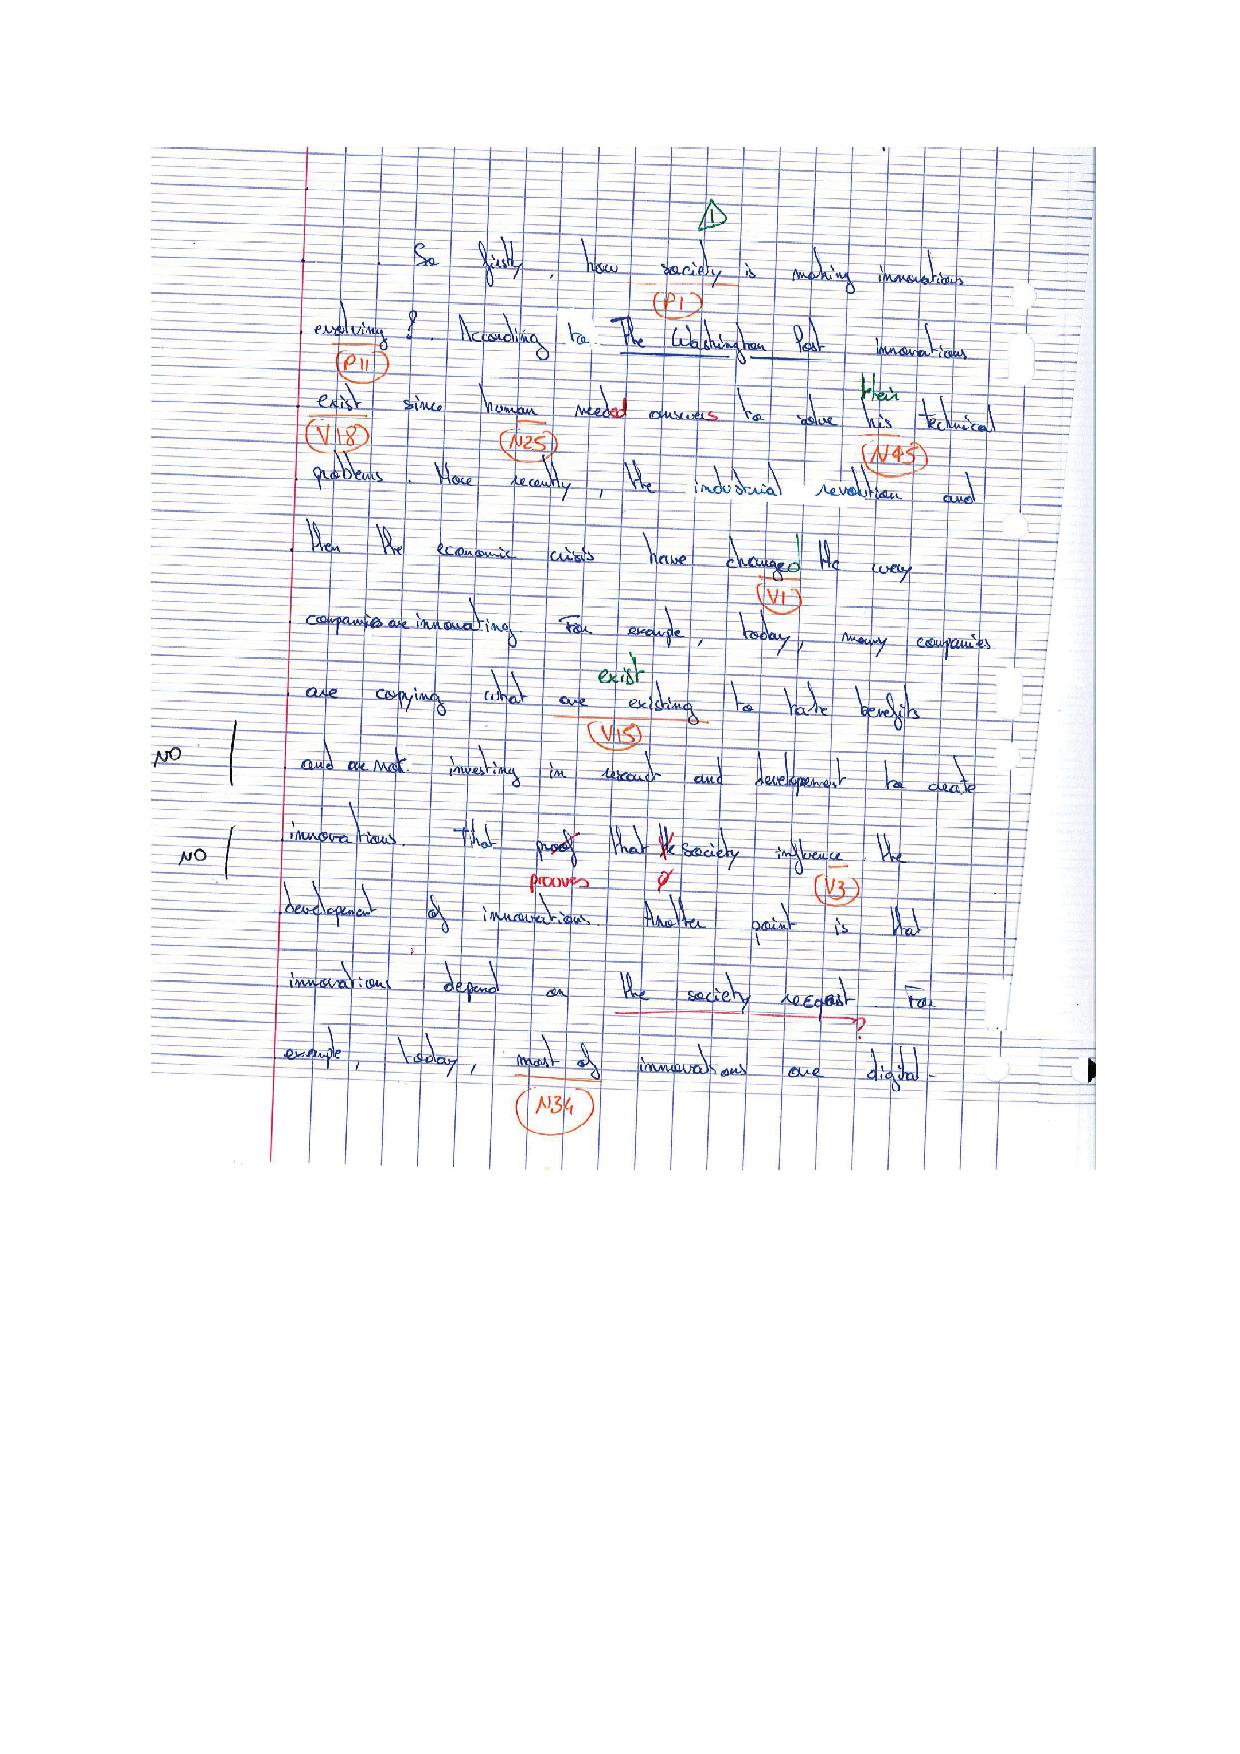 1
So firstly, how society is making innovations
P1
evolving ? According to The Washington Post innovations
P11
their
exist since human needed answers to solve his technical
V18 N25 N45
problems. More recently, the industrial revolution and
then the economic crisis have changed the way
V1
companies are innovating. For example, today, many companies
exist
are copying what are existing to take benefits
V15
NO and are not investing in and developement to create
innovations. That proof that the society influence the
NO
prouves V3
developement of innovations. Another point is that
innovations depend on the society request. For
?
example, today, most of innovations are digital.
N34